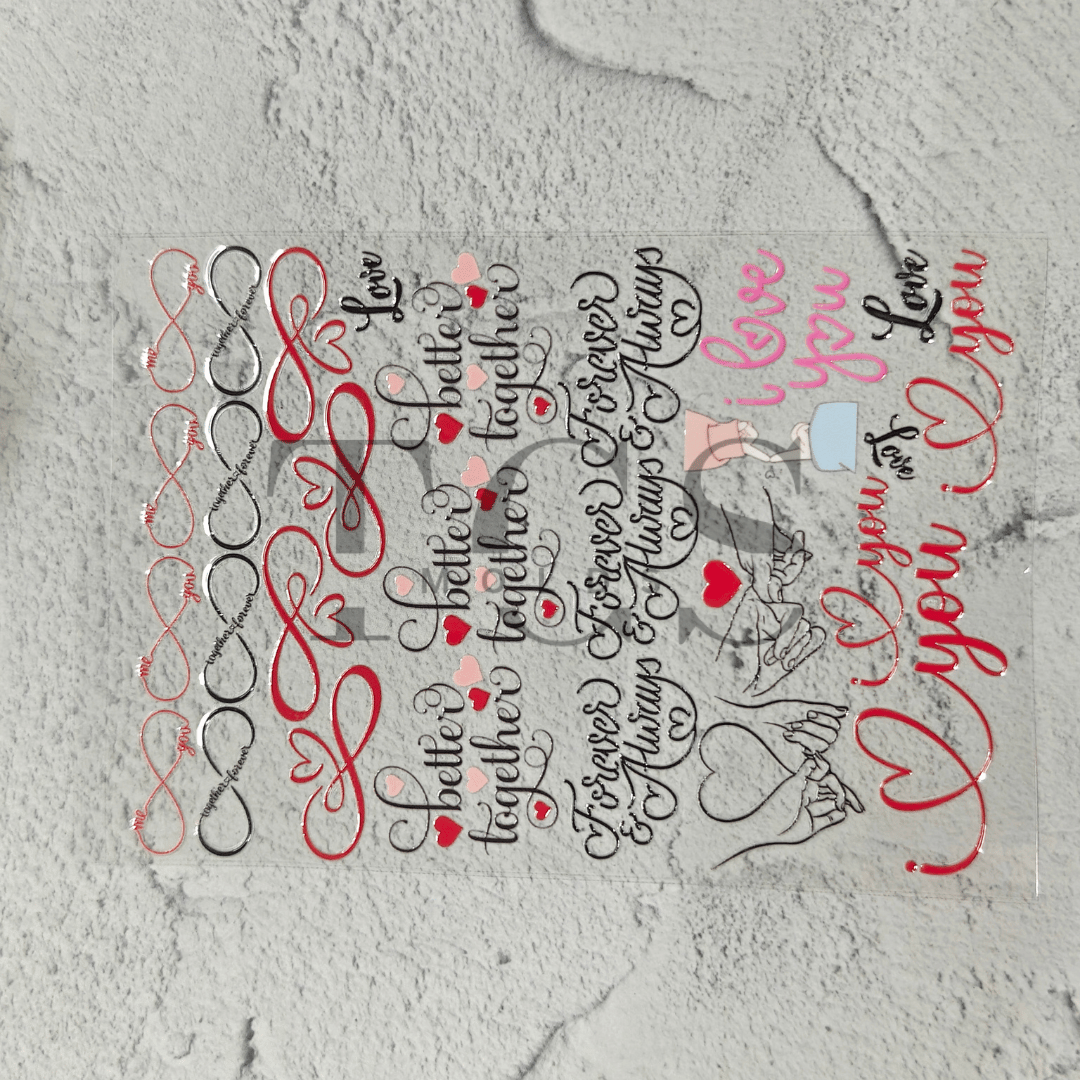 me you me you me you me you
together forever together forever together forever together forever
Love
better better better
together together together
Forever Forever Forever
& Always & Always & Always
i love
you
Love Love
i you
i you
i you